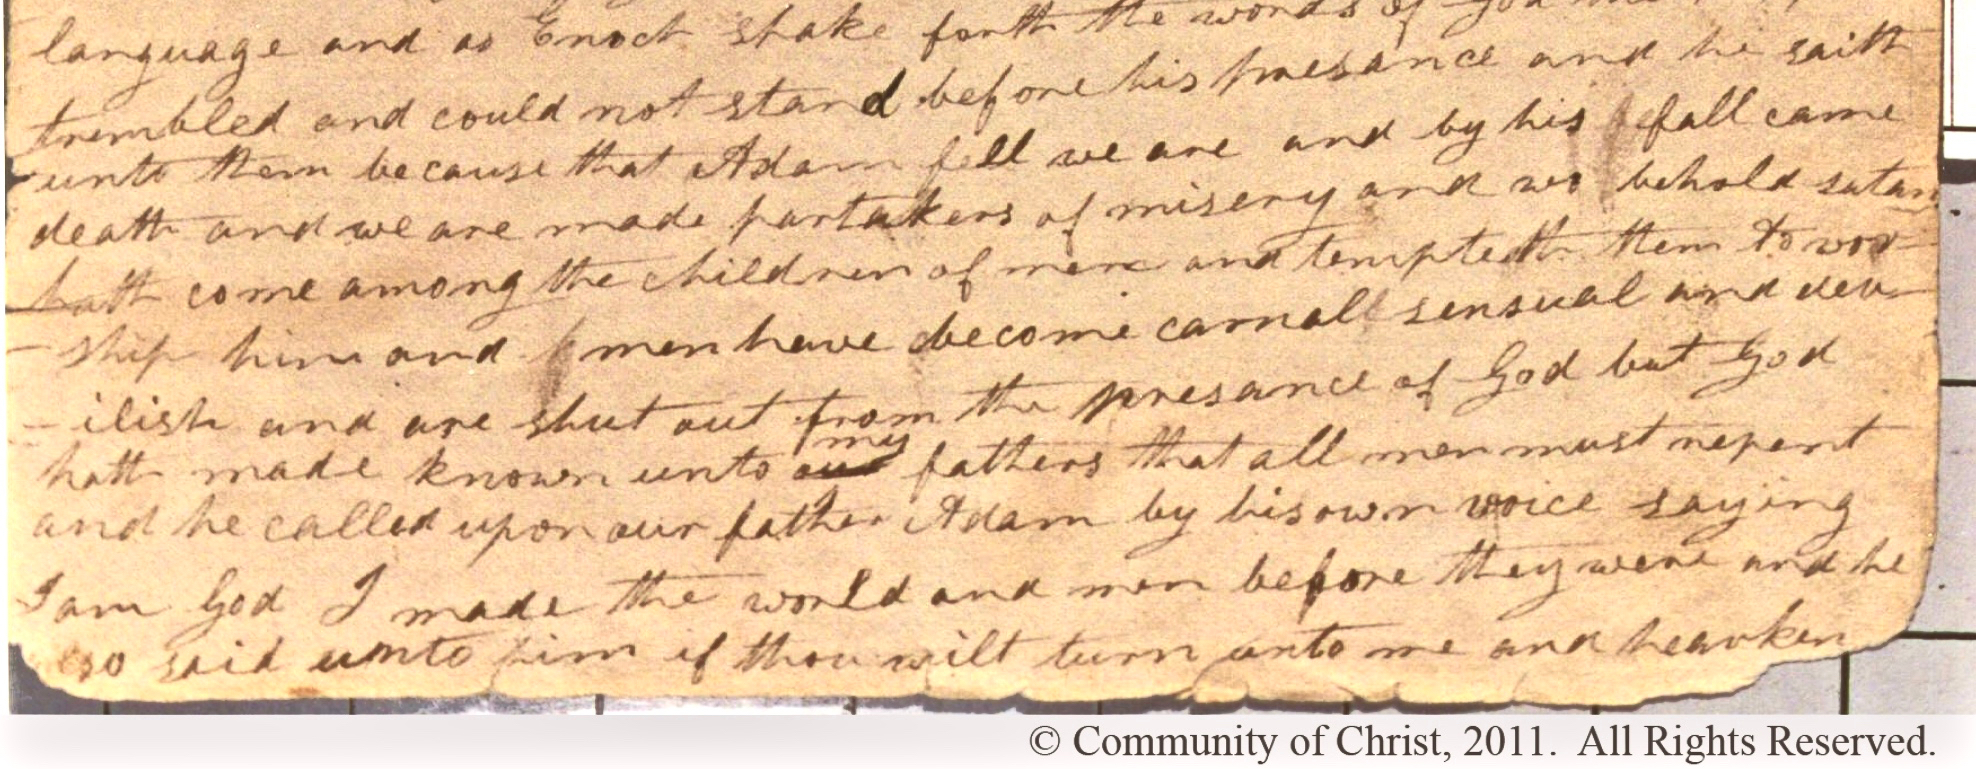 language and as Enoch spake forth the words of God the
trembled and could not stand before his presance and he saith
unto them because that Adam fell we are and by his fall came
death and we are made partakers of misery and wo behold satan
hath come among the children of men and tempteth them to wor-
-ship him and men have become carnall sensual and dev-
-ilish and are shut out from the presance of God but God
hath made known unto my fathers that all men must repent
and he called upon our father Adam by his own voice saying
I am God I made the world and men before they were and he
also said unto him if thou wilt turn unto me and hearken
© Community of Christ, 2011. All Rights Reserved.